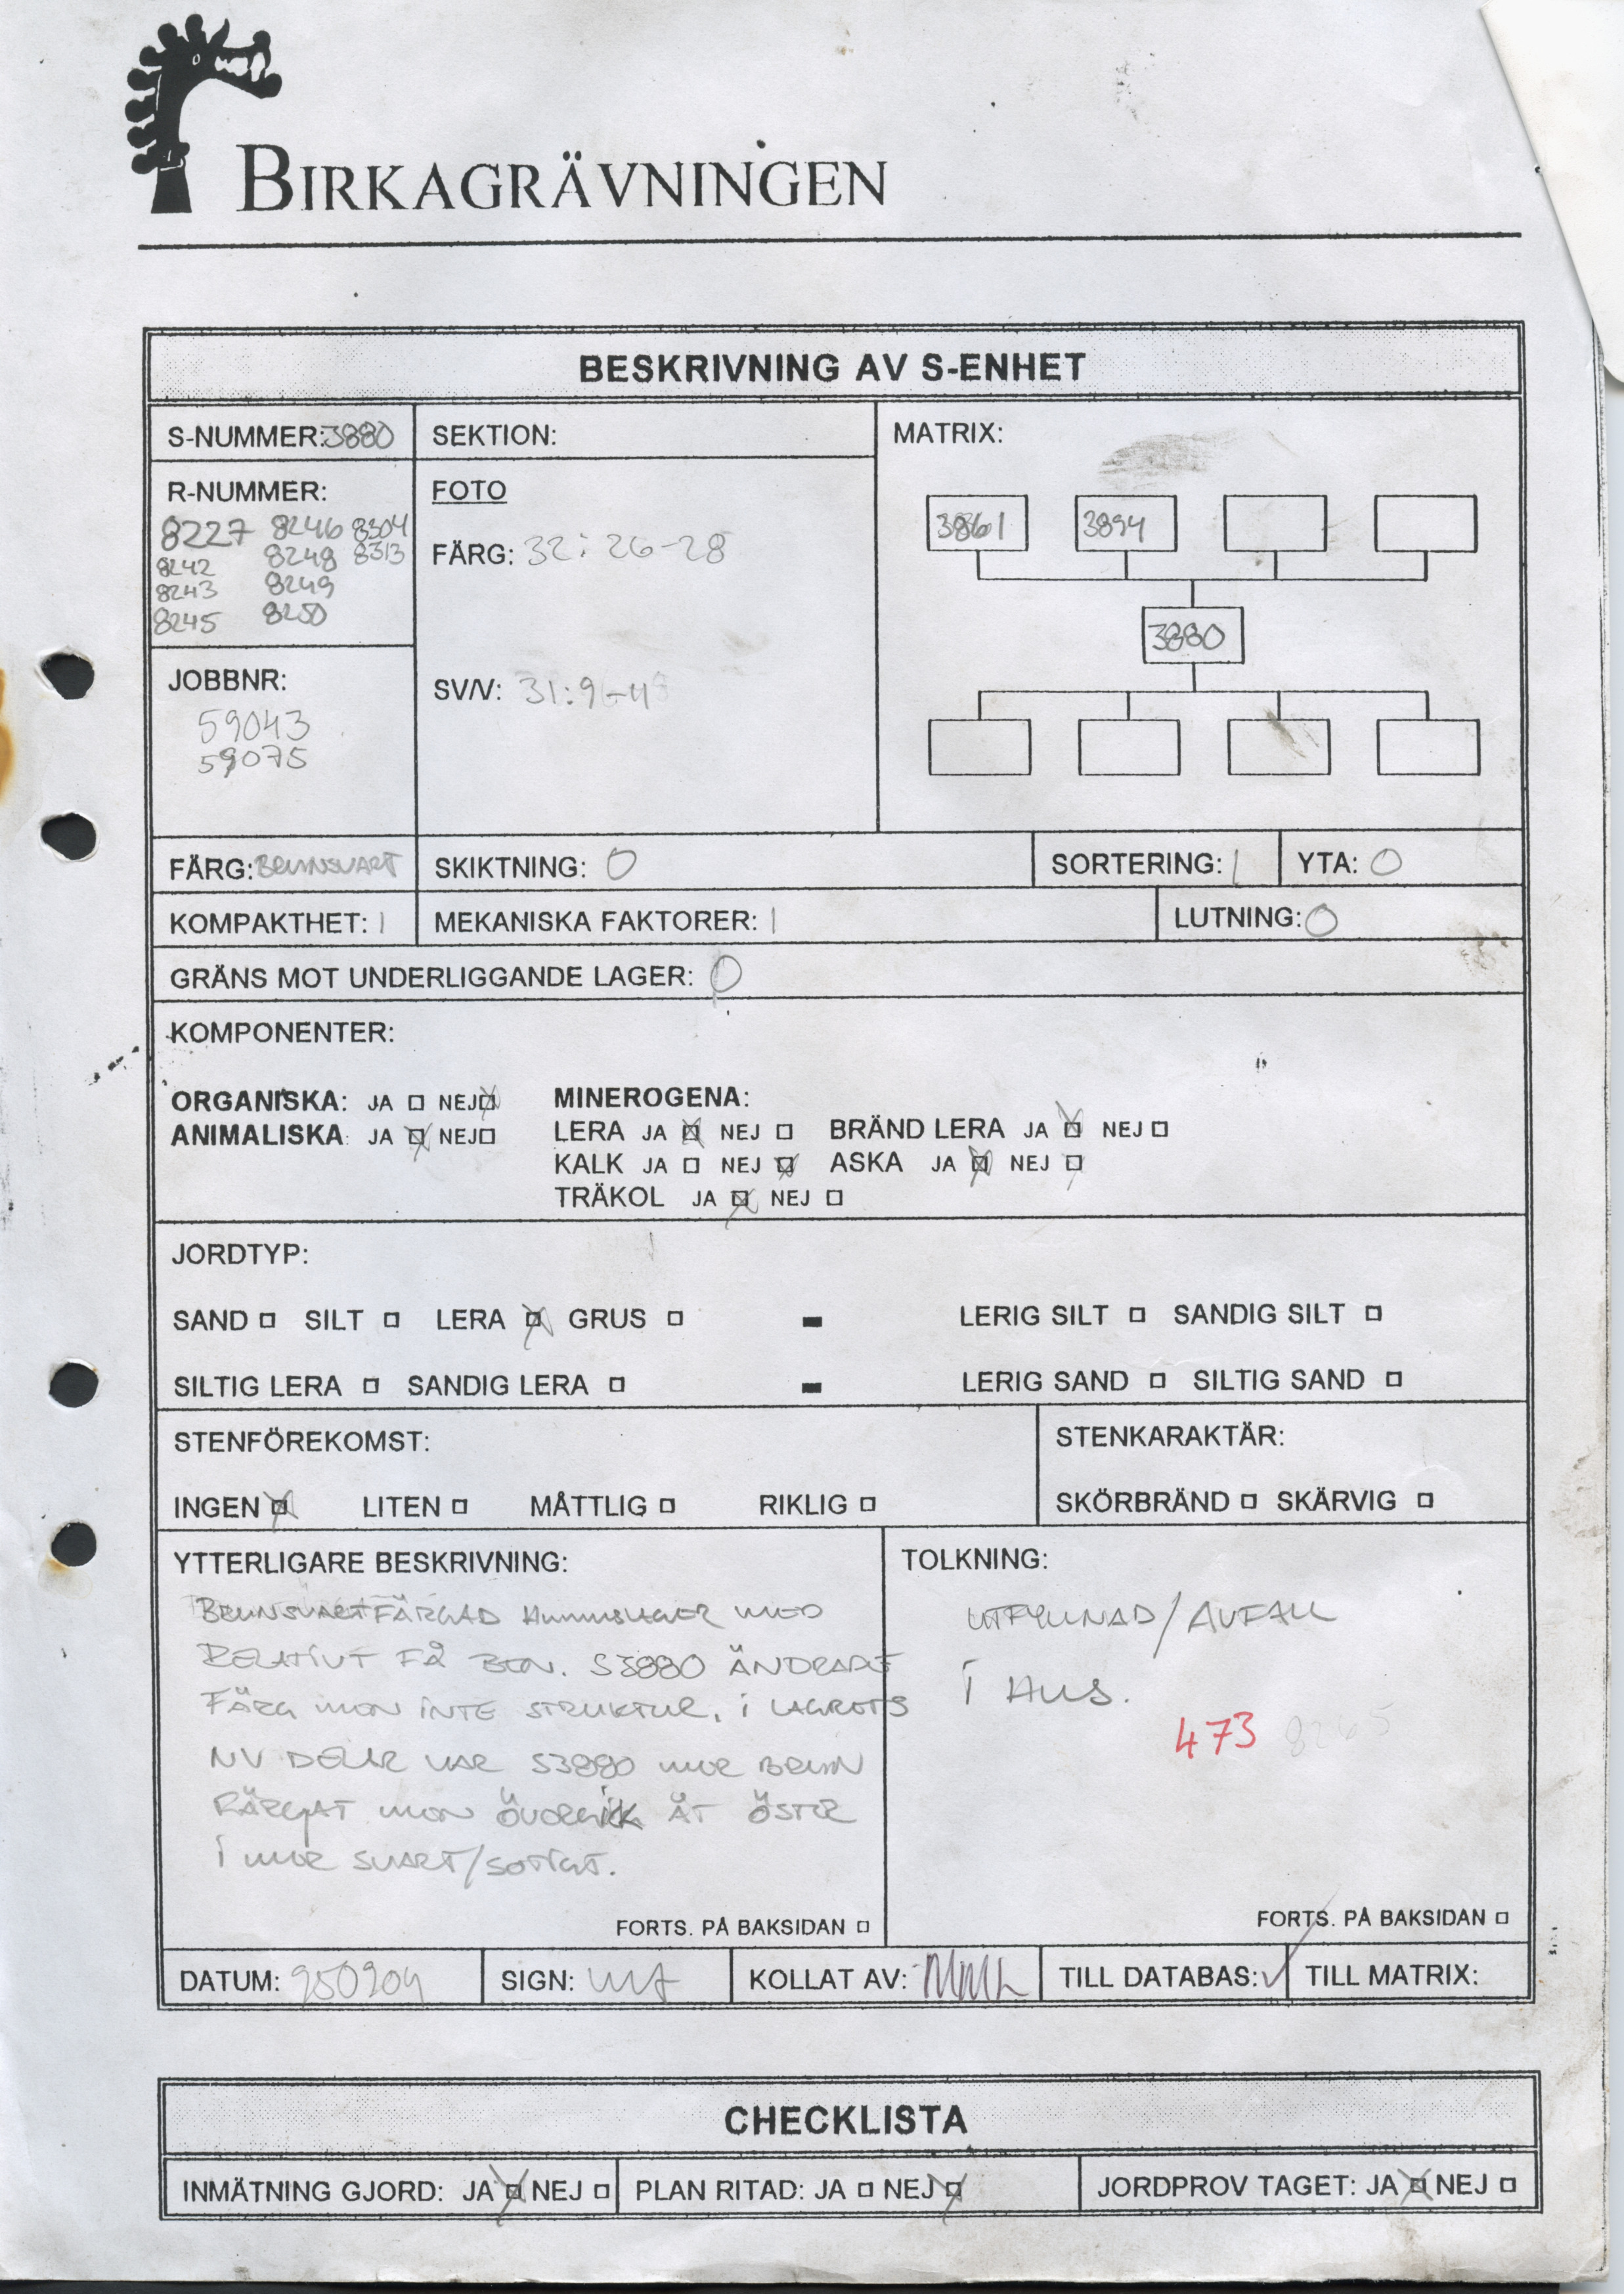 BIRKAGRÄVNINGEN
BESKRIVNING AV S-ENHET
S-NUMMER: 3880
SEKTION:
MATRIX:
R-NUMMER:
8227 8246 8304
8242 8248 8313
8243 8249
8245 8250
FOTO
FÄRG: 32: 26-28
SV/V: 31:9
3861 3894
3880
JOBBNR:
59043
59075
FÄRG: BRUNSVART SKIKTNING: 0 SORTERING: 1 YTA: 0
KOMPAKTHET: 1 MEKANISKA FAKTORER: 1 LUTNING: 0
GRÄNS MOT UNDERLIGGANDE LAGER: 0
KOMPONENTER:
ORGANISKA: JA NEJ MINEROGENA:
ANIMALISKA: JA NEJ LERA JA NEJ BRÄND LERA JA NEJ
KALK JA NEJ ASKA JA NEJ
TRÄKOL JA NEJ
JORDTYP:
SAND SILT LERA GRUS - LERIG SILT SANDIG SILT
SILTIG LERA SANDIG LERA - LERIG SAND SILTIG SAND
STENFÖREKOMST: STENKARAKTÄR:
INGEN LITEN MÅTTLIG RIKLIG SKÖRBRÄND SKÄRVIG
YTTERLIGARE BESKRIVNING:
BRUNSVARTFÄRGAD MED
RELATIVT FÅ BEN. S3880 ÄNDRADE
FÄRG MEN INTE STRUKTUR. I LAGRETS
NV DELAR VAR S3880 MER BRUN
FÄRGAT MEN ÖVERGICK ÅT ÖSTER
I MER SVART/SOTIGT.
FORTS. PÅ BAKSIDAN
TOLKNING:
UTFYLLNAD/AVFALL
I HUS.
473
FORTS. PÅ BAKSIDAN
DATUM: 950904 SIGN: KOLLAT AV: TILL DATABAS: TILL MATRIX:
CHECKLISTA
INMÄTNING GJORD: JA NEJ PLAN RITAD: JA NEJ JORDPROV TAGET: JA NEJ